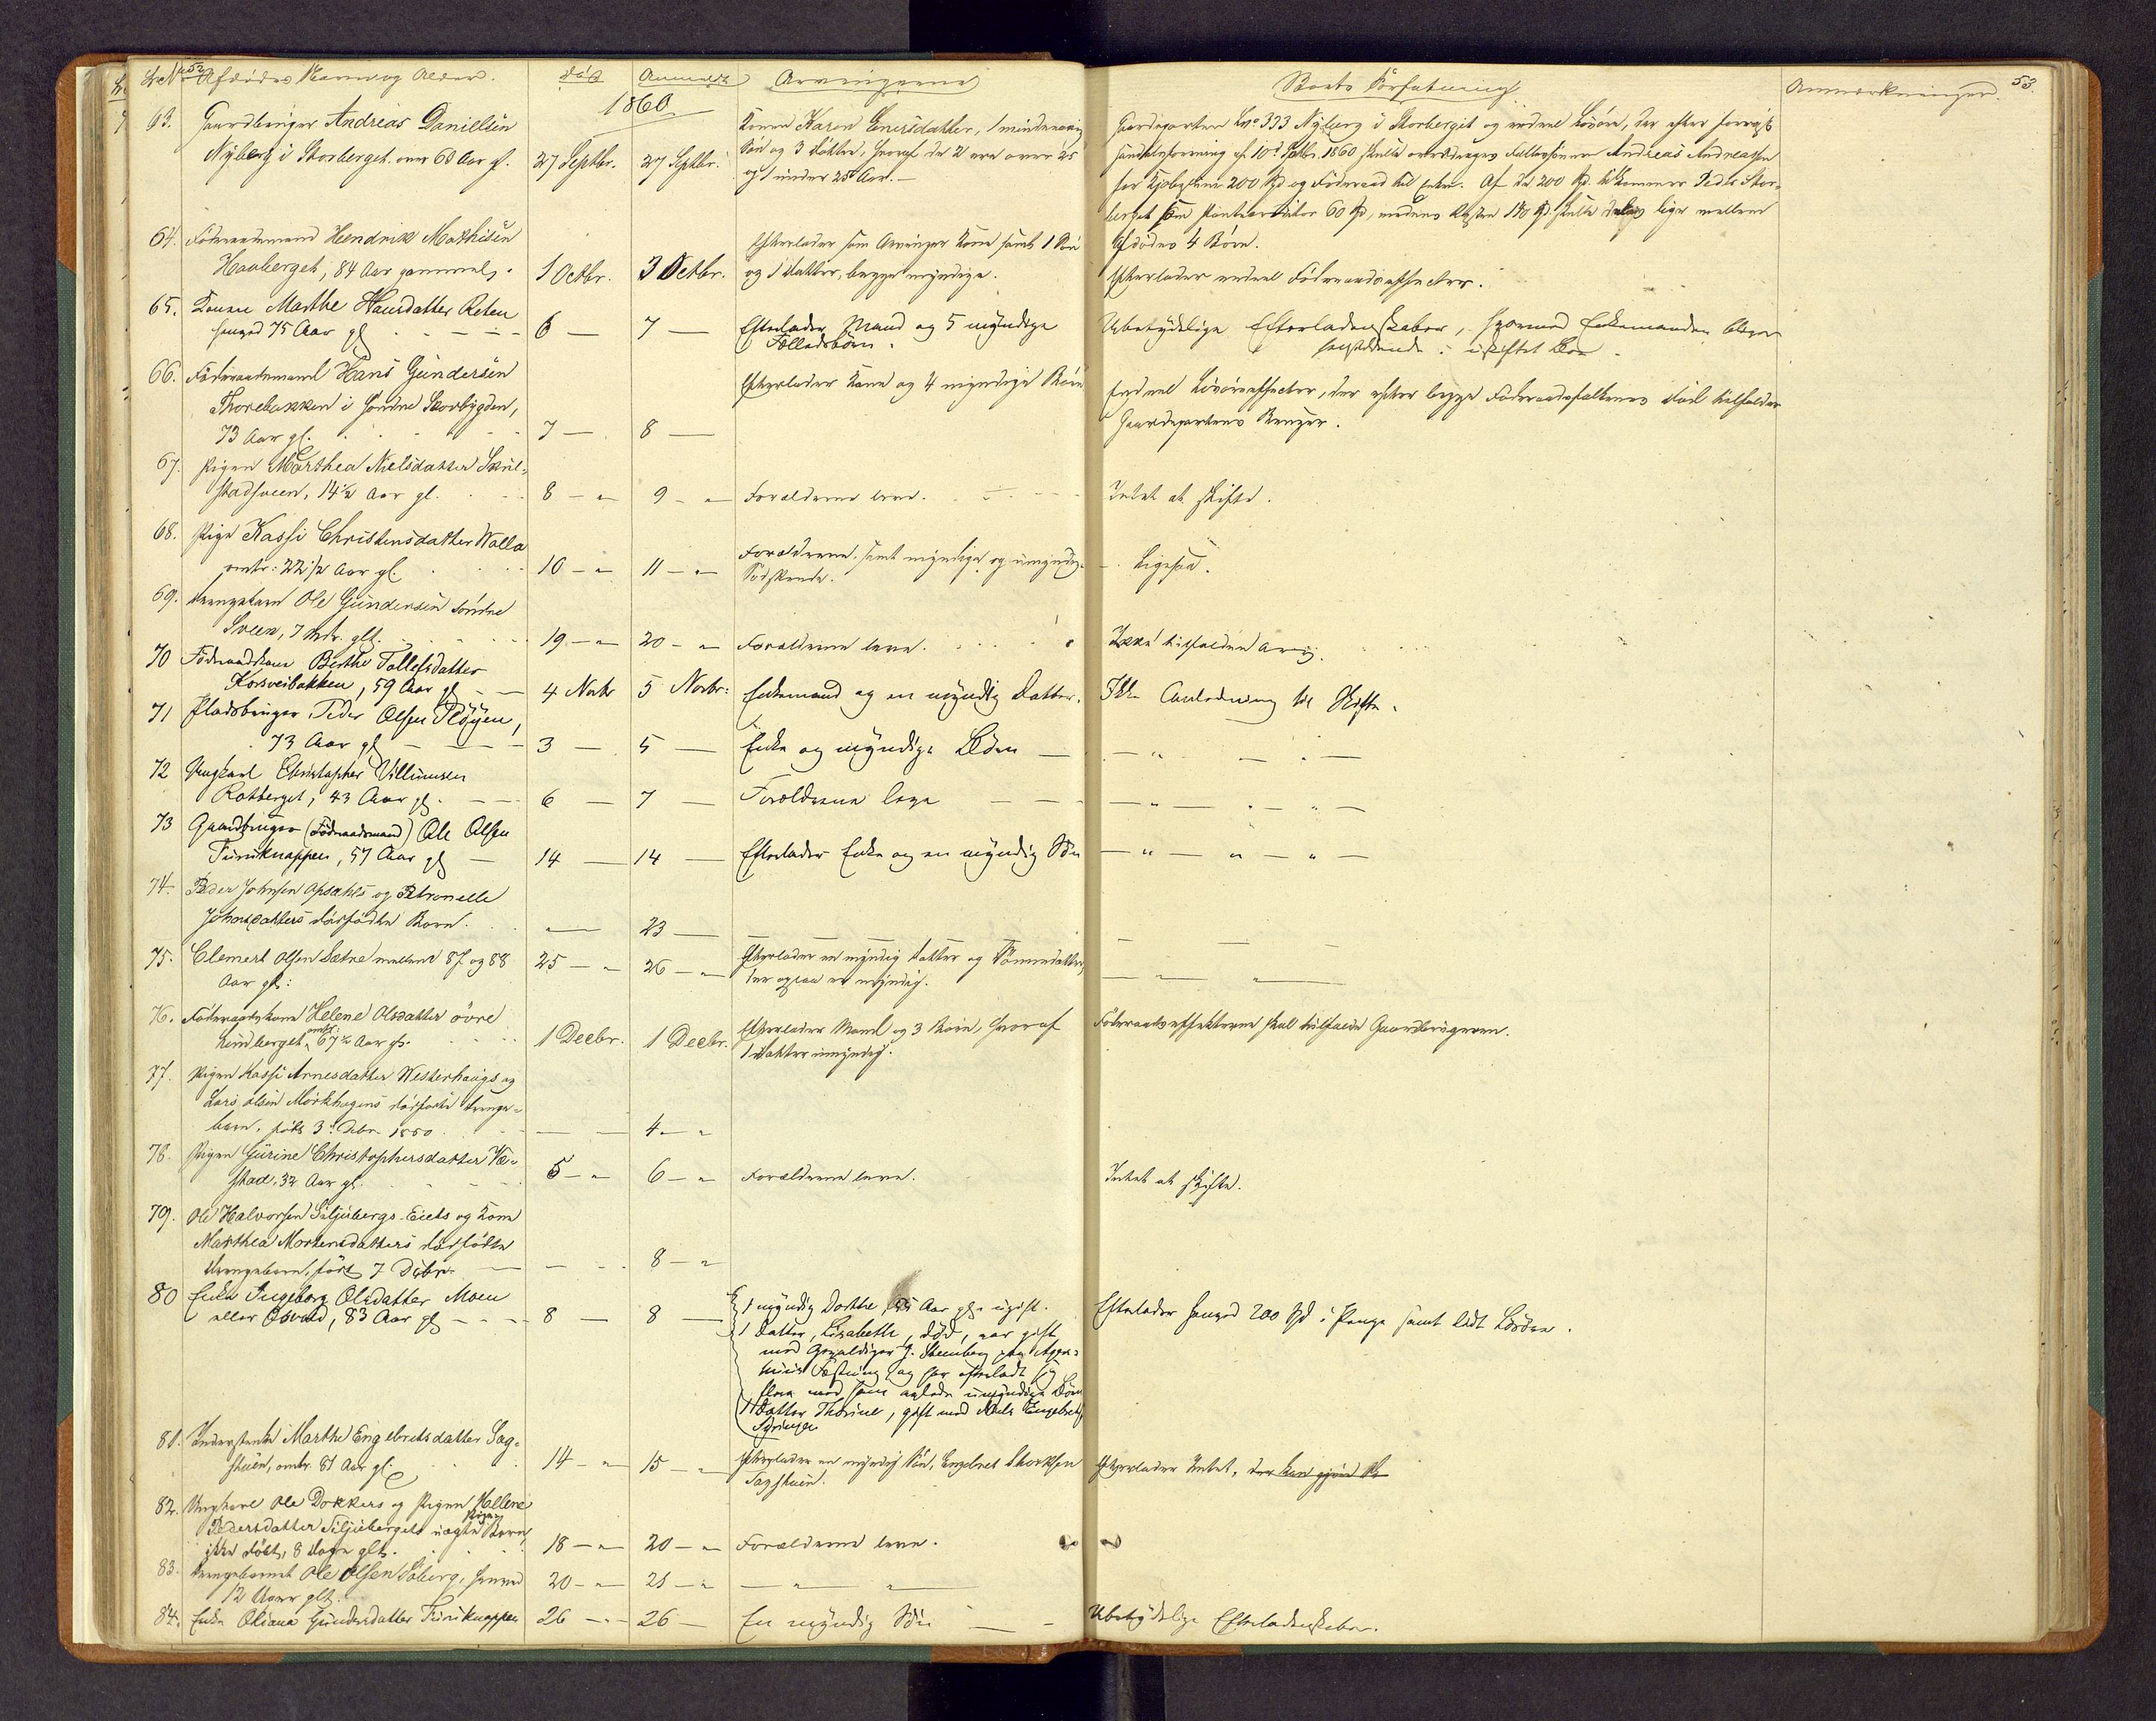 52
53.
Lb. No Afdødes Navn og Alder.
død
Anmeldt
Arvingerne
Boets Forfatning
Anmærkninger.
1860
63. Gaardbruger Andreas Daniellsen
Nyberg i Skorberget over 60 Aar gl.
27 Septbr.
27 Septbr.
Konen Karen Enersdatter, 1 mindreaarig
Søn og 3 Døttre, hvoraf de 2 ere over 25
og 1 under 25 Aar. —
Gaardeparten Lno 333 Nyberg i Skorberget og endeel Løsøre, der efter foreviist
10d Septbr. 1860 skulle overdrages Andreas Andreassen
for Kjøbesum 200 Spd og Føderaad til Enken. Af de 200 Spd. tilkommer Peder Skor-
berget som Pantecreditor 60 Spd, medens Resten 140 Spd. skulle deles lige mellem
Afdødes 4 Børn.
64. Føderaadsmand Hendrik Mathisen
Hauberget, 84 Aar gammel.
1 Octbr.
3 Octbr.
Efterlader som Arvinger Kone samt 1 Søn
og 1 Datter, begge myndige.
Efterlader endeel Føderaadseffecter.
65. Konen Marthe Hansdatter Reten
henved 75 Aar gl
6 —
7 —
Efterlader Mand og 5 myndige
Fælledsbørn.
Ubetydelige Efterladenskaber, hvormed Enkemanden bliver
hensiddende i uskiftet Bo.
66. Føderaadsmand Hans Gundersen
Thorebakken i søndre Skovbygden,
73 Aar gl.
7 —
8 —
Efterlader Kone og 4 myndige Børn
Endeel Løsøreeffecter, der efter begge Føderaadsfolkenes Død tilfalder
Gaardepartens Bruger.
67. Pigen Marthea Nielsdatter Skul-
stadsveen, 14½ Aar gl.
8 — "
9 — "
Forældrene leve.
Intet at skifte.
68. Pige Kassi Christensdatter Walla
omtr: 22½ Aar gl.
10 — "
11 — "
Forældrene, samt myndige og umyndige
Sødskende.
Ligesaa.
69. Drengebarn Ole Gundersen søndre
Sveen, 7 Mdr. glt.
19 — "
20 — "
Forældrene leve.
Ikke tilfalden Arv.
70 Føderaadskone Berthe Tollefsdatter
Korsveibakken, 59 Aar gl
4 Novbr
5 Novbr:
Enkemand og en myndig Datter.
Ikke Anledning til Skifte.
71 Pladsbruger Peder Olsen Pløyen,
73 Aar gl
3 —
5 —
Enke og myndige Børn —
— " — " —
72 Ungkarl Christopher Villumsen
Rotberget, 43 Aar gl.
6 —
7 —
Forældrene leve
— " — " — " —
73 Gaardbruger (Føderaadsmand) Ole Olsen
Furuknappen, 57 Aar gl
14 —
14 —
Efterlader Enke og en myndig Søn
— " — " — " —
74. Peder Johnsen Opsahls og Petronelle
Johnsdatters dødfødte Barn.
—
23 —
75. Clemert Olsen Sætre mellem 87 og 88
Aar gl:
25 — "
26 — "
Efterlader en myndig Datter og Sønnedatter,
der ogsaa er myndig.
— " — " —
76. Føderaadskone Helene Olsdatter øvre
Lindberget, omtr: 67½ Aar gl.
1 Decbr.
1 Decbr.
Efterlader Mand og 3 Børn, hvoraf
1 Datter umyndig.
Føderaadseffekterne skal tilfalde Gaardbrugeren.
77. Pigen Kassi Arnesdatter Westerhaugs og
Lars Olsen Mørkhagens dødfødte Drenge-
barn, født 3. Debr. 1860.
—
4 — "
78. Pigen Gurine Christophersdatter Væ-
stad, 32 Aar gl.
5 — "
6 — "
Forældrene leve.
Intet at skifte.
79. Ole Halvorsen Siljubergs-Eiets og Kone
Marthea Mortensdatters dødfødte
Drengebarn, født 7 Decbr.
—
8 — "
80 Enke Ingeborg Olsdatter Moen
eller Osvold, 83 Aar gl
8 —
8 —
1 myndig Dorthe, 55 Aar gl. ugift.
1 Datter, Lisabeth, død, var gift
med Gevaldiger G. Stenberg paa Agers-
huus Fæstning og har efterladt sig
flere med ham avlede umyndige Børn
1 Datter Thorine, gift med Niels Engebretsen
Efterlader henved 200 Spd i Penge samt lidt Løsøre.
81. Inderstenke Marthe Engebretsdatter Sag-
stuen, omtr. 81 Aar gl.
14 — "
15 — "
Efterlader en myndig Søn, Engebret Thorksen
Sagstuen.
Efterlader Intet, der kan gjøres til
82. Ungkarl Ole Dokkers og Pigen Hellene
Pedersdatter Siljubergets uægte Pigebarn,
ikke døbt, 8 Dage glt.
18 — "
20 — "
Forældrene leve.
83. Drengebarnet Ole Olsen Søberg, henved
12 Uger glt.
20 — "
21 — "
— " — " —
84. Enke Oliana Gundersdatter Furuknappen
26 — "
26 —
En myndig Søn
Ubetydelige Efterladenskaber.